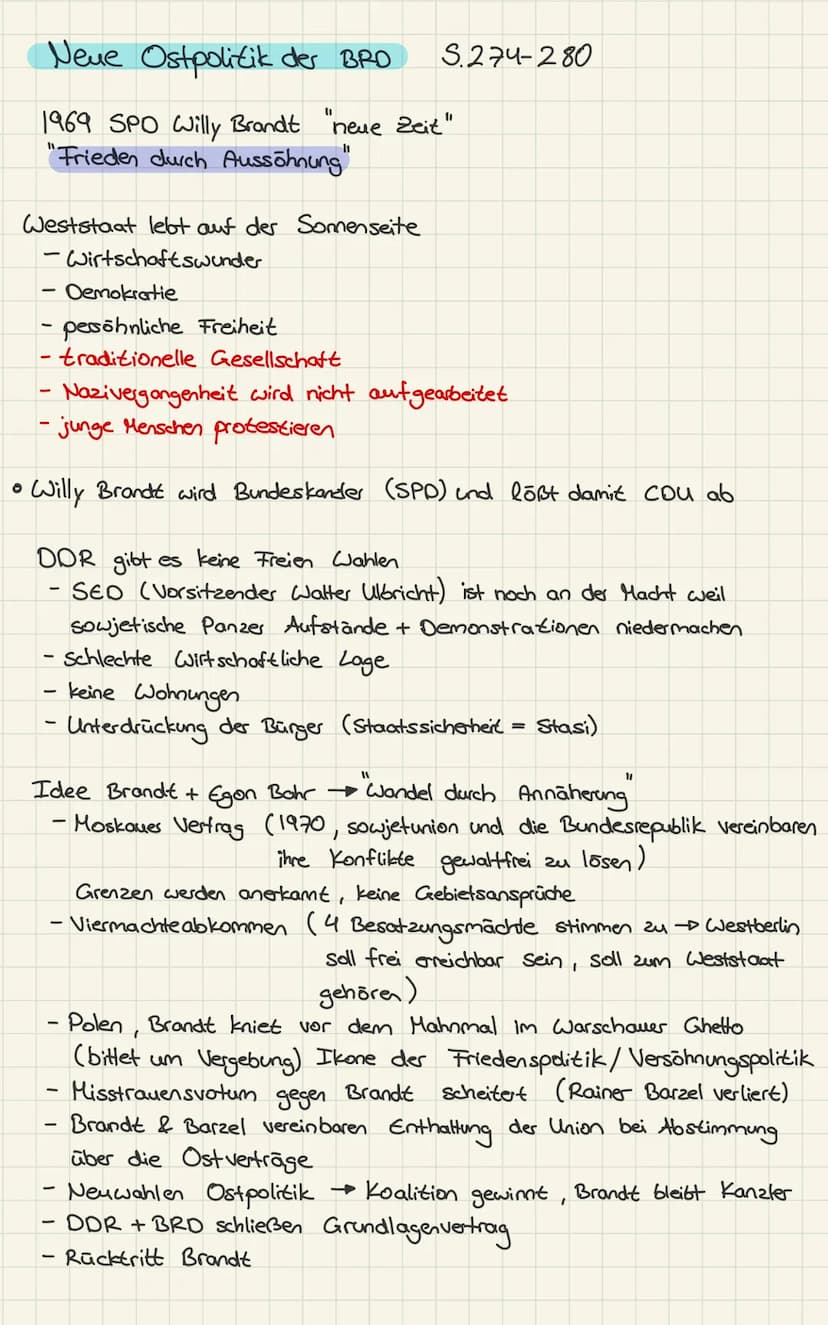 Neue Ostpolitik der BRD S.274-280
1969 SPD Willy Brandt "neue Zeit"
"Frieden durch Aussöhnung"
Weststaat lebt auf der Sonnenseite
- Wirtschaftswunder
- Demokratie
- persöhnliche Freiheit
- traditionelle Gesellschaft
- Nazivergangenheit wird nicht aufgearbeitet
- junge Menschen protestieren
• Willy Brandt wird Bundeskanzler (SPD) und lößt damit CDU ab
DDR gibt es keine Freien Wahlen
- SED (Vorsitzender Walter Ulbricht) ist noch an der Macht weil
sowjetische Panzer Aufstände + Demonstrationen niedermachen
- schlechte Wirtschaftliche Lage
- keine Wohnungen
- Unterdrückung der Bürger (Staatssicherheit = Stasi)
Idee Brandt + Egon Bahr → "Wandel durch Annäherung"
- Moskauer Vertrag (1970, sowjetunion und die Bundesrepublik vereinbaren
ihre Konflikte gewaltfrei zu lösen)
Grenzen werden anerkannt, keine Gebietsansprüche
- Viermächteabkommen (4 Besatzungsmächte stimmen zu → Westberlin
soll frei erreichbar sein, soll zum Weststaat
gehören)
- Polen, Brandt kniet vor dem Mahnmal im Warschauer Ghetto
(bittet um Vergebung) Ikone der Friedenspolitik/Versöhnungspolitik
- Misstrauensvotum gegen Brandt scheitert (Rainer Barzel verliert)
- Brandt & Barzel vereinbaren Enthaltung der Union bei Abstimmung
über die Ostverträge
- Neuwahlen Ostpolitik → Koalition gewinnt, Brandt bleibt Kanzler
- DDR + BRD schließen Grundlagenvertrag
- Rücktritt Brandt